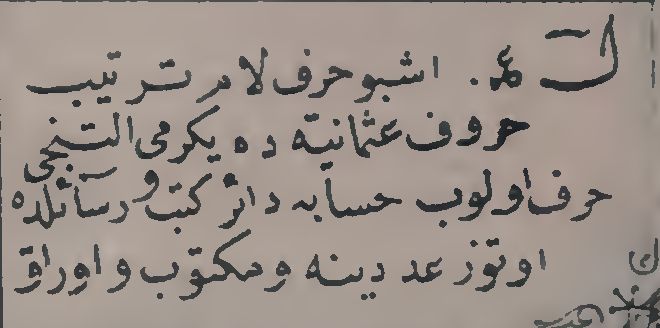 ل ع. اشبو حرف لام ترتيب
حروف عثمانيه ده يكرمى التنجى
حرف اولوب حسابه دائر كتب و رسائلده
اوتوز عددينه و مكتوب و اوراق